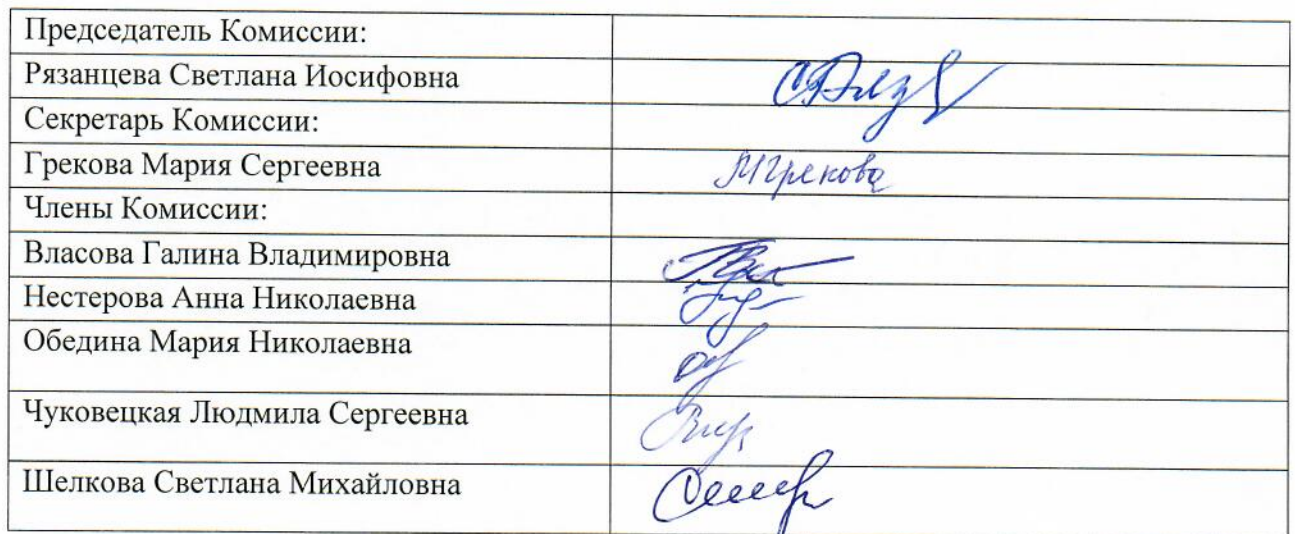 Председатель Комиссии:
Рязанцева Светлана Иосифовна
Секретарь Комиссии:
Грекова Мария Сергеевна МГрекова
Члены Комиссии:
Власова Галина Владимировна
Нестерова Анна Николаевна
Обедина Мария Николаевна
Чуковецкая Людмила Сергеевна
Шелкова Светлана Михайловна